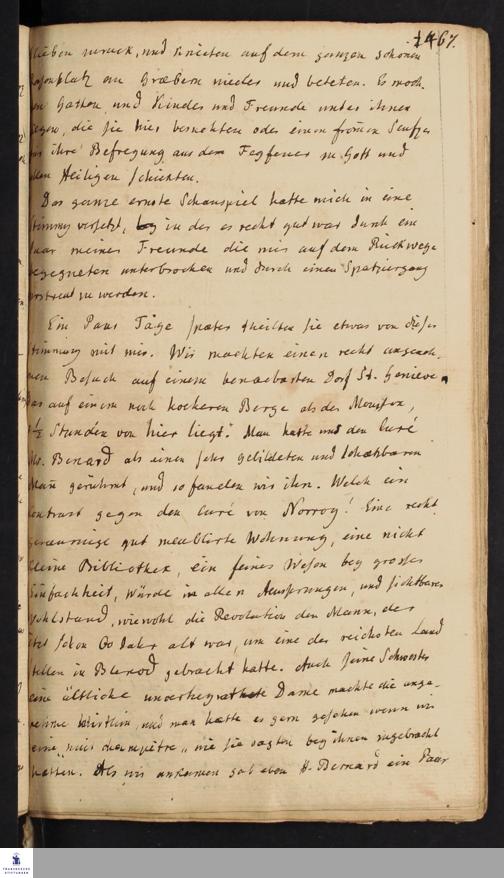 1467.
blieben zurück, und knieten auf dem ganzen schönen
Rasenplatz an Gräbern nieder und beteten. Es moch-
ten Gatten und Kinder und Freunde unter ihnen
liegen, die sie hier beruchten oder einen from̄en Seufzer
für ihre Befreyung aus dem Fegfeuer zu Gott und
allen Heiligen schickten.
Das ganze ernste Schauspiel hatte mich in eine
Stimmung versetzt, in der es recht gut war durch ein
Paar meiner Freunde die mir auf dem Rückwege
begegneten unterbrochen und durch einen Spatziergang
zerstreut zu werden.
Ein Paar Täge später theilten sie etwas von dieser
Stimmung mit mir. Wir machten einen recht angeneh-
men Besuch auf einem benachbarten Dorf St. Genieve
das auf einem noch höckeren Berge als der Mousson,
1½ Stunden von hier liegt. Man hatte uns den Curé
Mr. Benard als einen sehr gebildeten und schätzbaren
Man̄ gerühmt, und so fanden wir ihn. Welch ein
Contrast gegen den Curé von Norroy! Eine recht
geraeumige gut meublirte Wohnung, eine nicht
kleine Bibliothek, ein feines Wesen bey grosser
Einfachheit, Würde in allen Aeusserungen, und sichtbarer
Wohlstand, wiewohl die Revolution den Mann, der
itzt schon 60 Jahr alt war, um eine der reichsten Land
stellen in gebracht hatte. Auch seine Schwester
eine ältliche unverheyrathete Dame machte die ange-
nehme Wirthin, und man hätte es gern gesehen wenn wir
eine „nuit champêtre„ wie sie sagten bey ihnen zugebracht
hätten. Als wir ankamen gab eben H. Bernard ein Paar